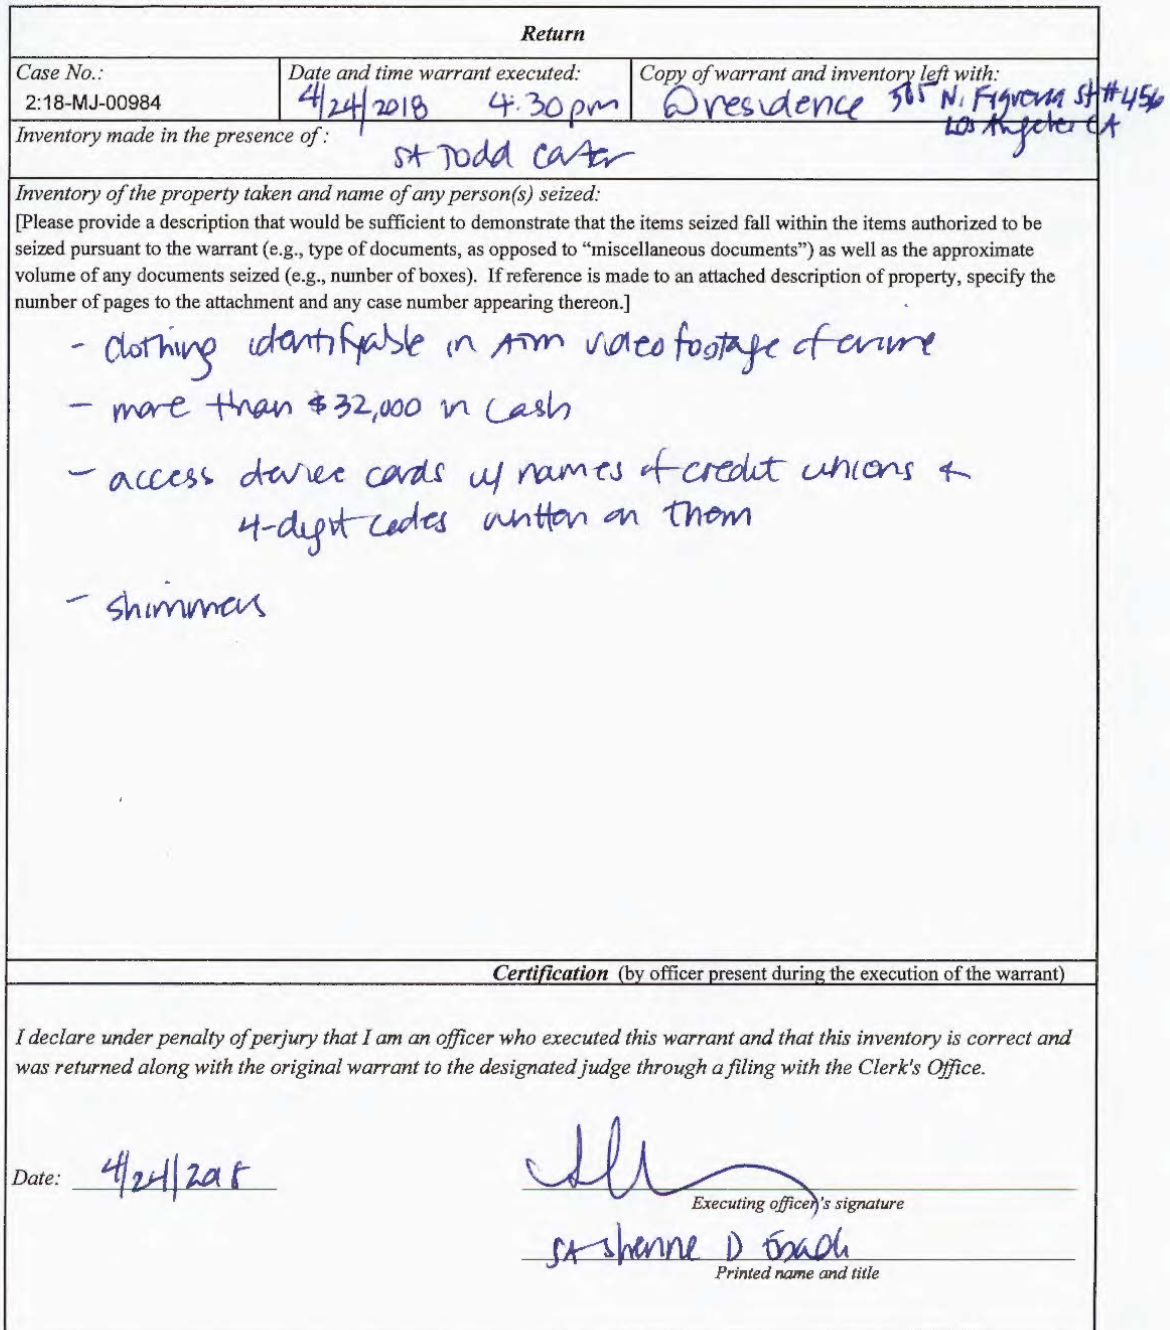 Return
Case No.:
2:18-MJ-00984
Date and time warrant executed:
4/24/2018 4:30pm
Copy of warrant and inventory left with:
@residence N. Figueroa St #456
Los Angeles CA
Inventory made in the presence of :
SA Todd Carter
Inventory of the property taken and name of any person(s) seized:
[Please provide a description that would be sufficient to demonstrate that the items seized fall within the items authorized to be
seized pursuant to the warrant (e.g., type of documents, as opposed to "miscellaneous documents") as well as the approximate
volume of any documents seized (e.g., number of boxes). If reference is made to an attached description of property, specify the
number of pages to the attachment and any case number appearing thereon.]
- clothing identifiable in ATM video footage of crime
- more than $32,000 in cash
- access device cards w/ names of credit unions &
4-digit codes written on them
- shimmers
Certification (by officer present during the execution of the warrant)
I declare under penalty of perjury that I am an officer who executed this warrant and that this inventory is correct and
was returned along with the original warrant to the designated judge through a filing with the Clerk's Office.
Date: 4/24/2018
Executing officer's signature
SA D
Printed name and title